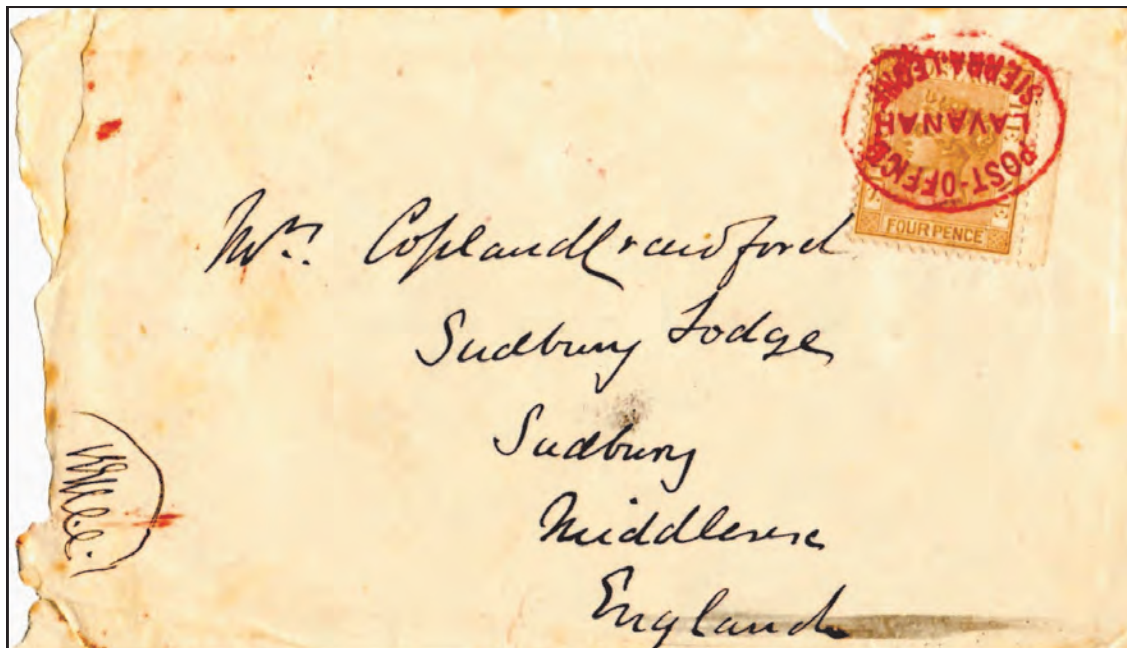 POST-OFFICE
LAVANAH
SIERRA.LEONE
FOUR PENCE
Mrs. Copland Crawford
Sudbury Lodge
Sudbury
Middlesex
England